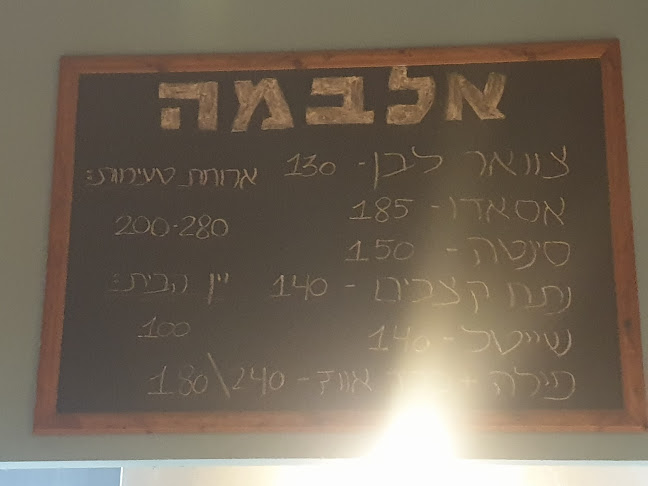 אלבמה
צוואר לבן - 130
אסאדו - 185
סינטה - 150
נתח קצבים - 140
שייטל - 140
פילה + אווז - 180\240
ארוחת טעימות:
200-280
יין הבית:
100